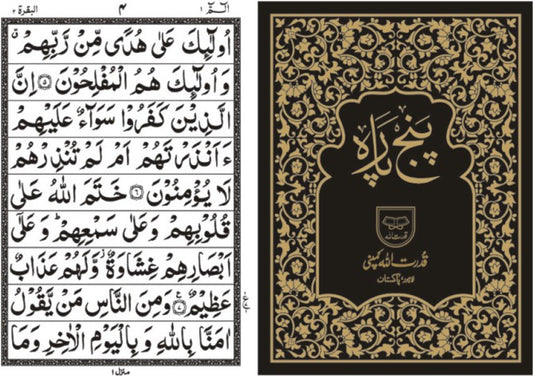 البقرة ٢
٤
الٓمّٓ ١
اُولٰٓئِكَ عَلٰى هُدًى مِّنْ رَّبِّهِمْ ۙ
وَ اُولٰٓئِكَ هُمُ الْمُفْلِحُوْنَ ۝٥ اِنَّ
الَّذِيْنَ كَفَرُوْا سَوَآءٌ عَلَيْهِمْ
ءَاَنْذَرْتَهُمْ اَمْ لَمْ تُنْذِرْهُمْ
لَا يُؤْمِنُوْنَ ۝٦ خَتَمَ اللّٰهُ عَلٰى
قُلُوْبِهِمْ وَ عَلٰى سَمْعِهِمْ ؕ وَ عَلٰٓى
اَبْصَارِهِمْ غِشَاوَةٌ ؗ وَّ لَهُمْ عَذَابٌ
عَظِيْمٌ ۝٧ وَ مِنَ النَّاسِ مَنْ يَّقُوْلُ
اٰمَنَّا بِاللّٰهِ وَ بِالْيَوْمِ الْاٰخِرِ وَ مَا
منزل ١
پنج پارہ
قدرت اللہ کمپنی
لاہور، پاکستان